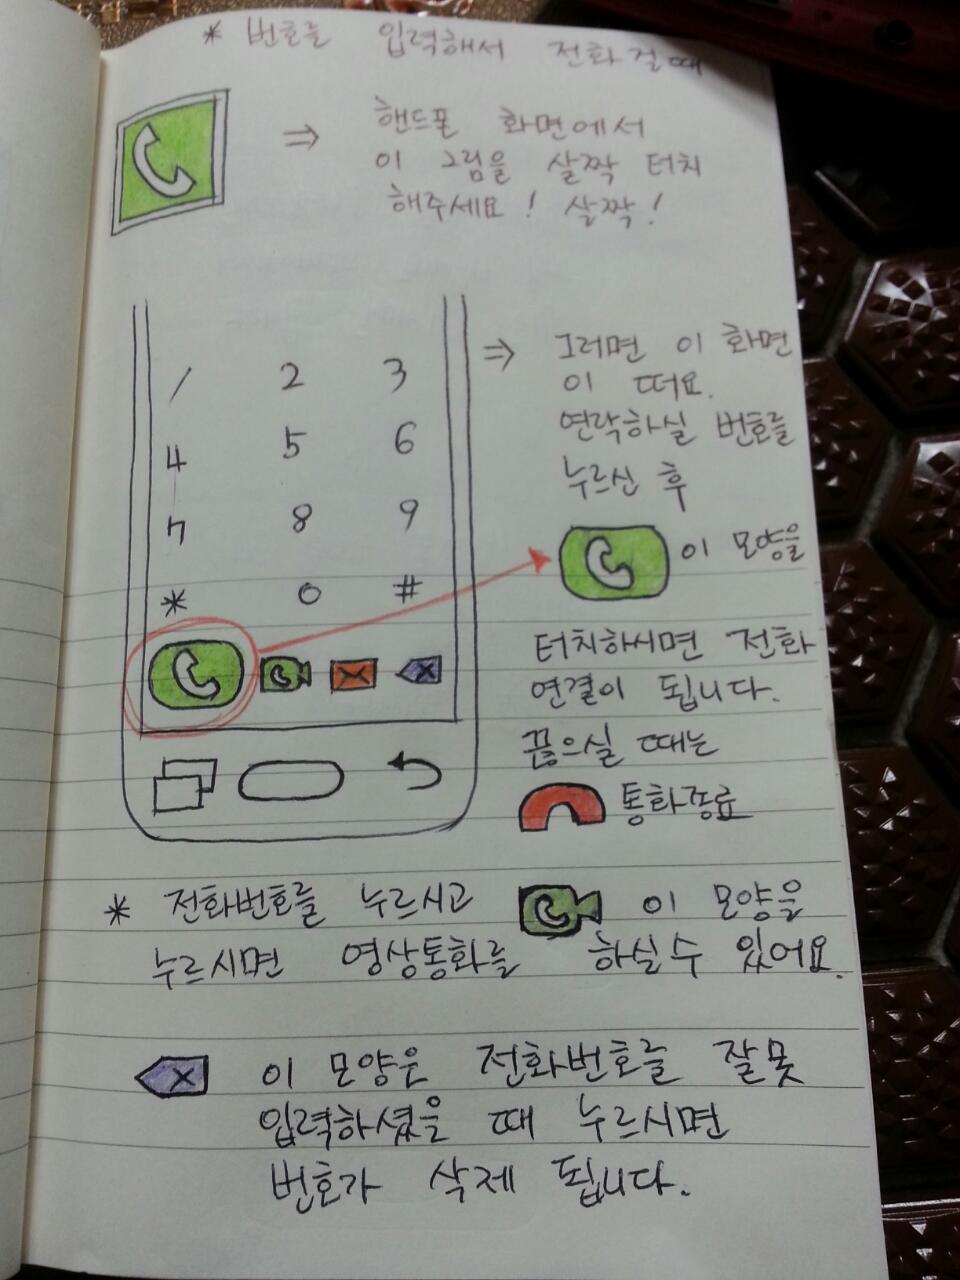 * 번호를 입력해서 전화걸때
⇒ 핸드폰 화면에서
이 그림을 살짝 터치
해주세요! 살짝!
1 2 3
4 5 6
7 8 9
* 0 #
⇒ 그러면 이 화면
이 떠요.
연락하실 번호를
누르신 후
이 모양을
터치하시면 전화
연결이 됩니다.
끊으실 때는
통화종료
* 전화번호를 누르시고 이 모양을
누르시면 영상통화를 하실수 있어요.
이 모양은 전화번호를 잘못
입력하셨을 때 누르시면
번호가 삭제 됩니다.